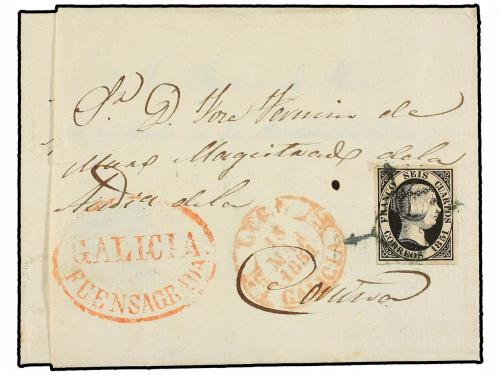 Sr. D. José Fermin de
Muro Magistrado de la
Audia de la
Coruña
GALICIA
FUENSAGRADA
LUGO
MY
1851
GALICIA
FRANCO SEIS CUARTOS
CORREOS 1851